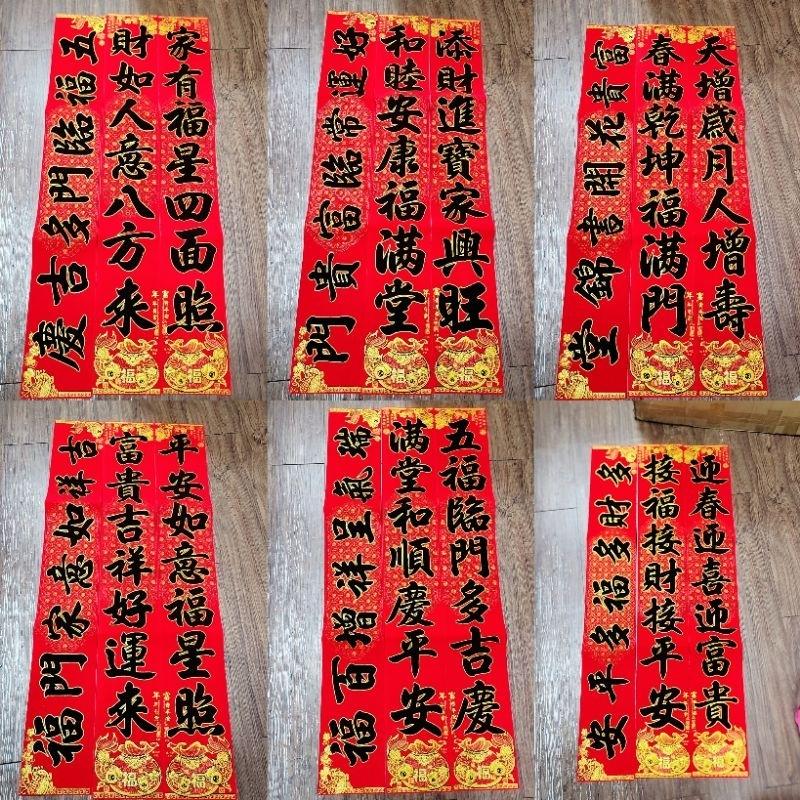 家有福星四面照
財如人意八方來
五福臨門多吉慶
福
福
添財進寶家興旺
和睦安康福滿堂
好運常臨富貴門
福
福
天增歲月人增壽
春滿乾坤福滿門
富貴花開書錦堂
福
福
平安如意福星照
富貴吉祥好運來
吉祥如意家門福
福
福
五福臨門多吉慶
滿堂和順慶平安
瑞氣呈祥增百福
福
福
迎春迎喜迎富貴
接福接財接平安
多財多福多平安
福
福